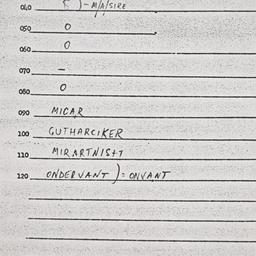 040 5 ) - M/A/SIRE
050 O
060 O
070 -
080 O
090 MICAR
100 GUTHARCIKER
110 MIRARTNISTT
120 ONDERVANT ) = ONVANT